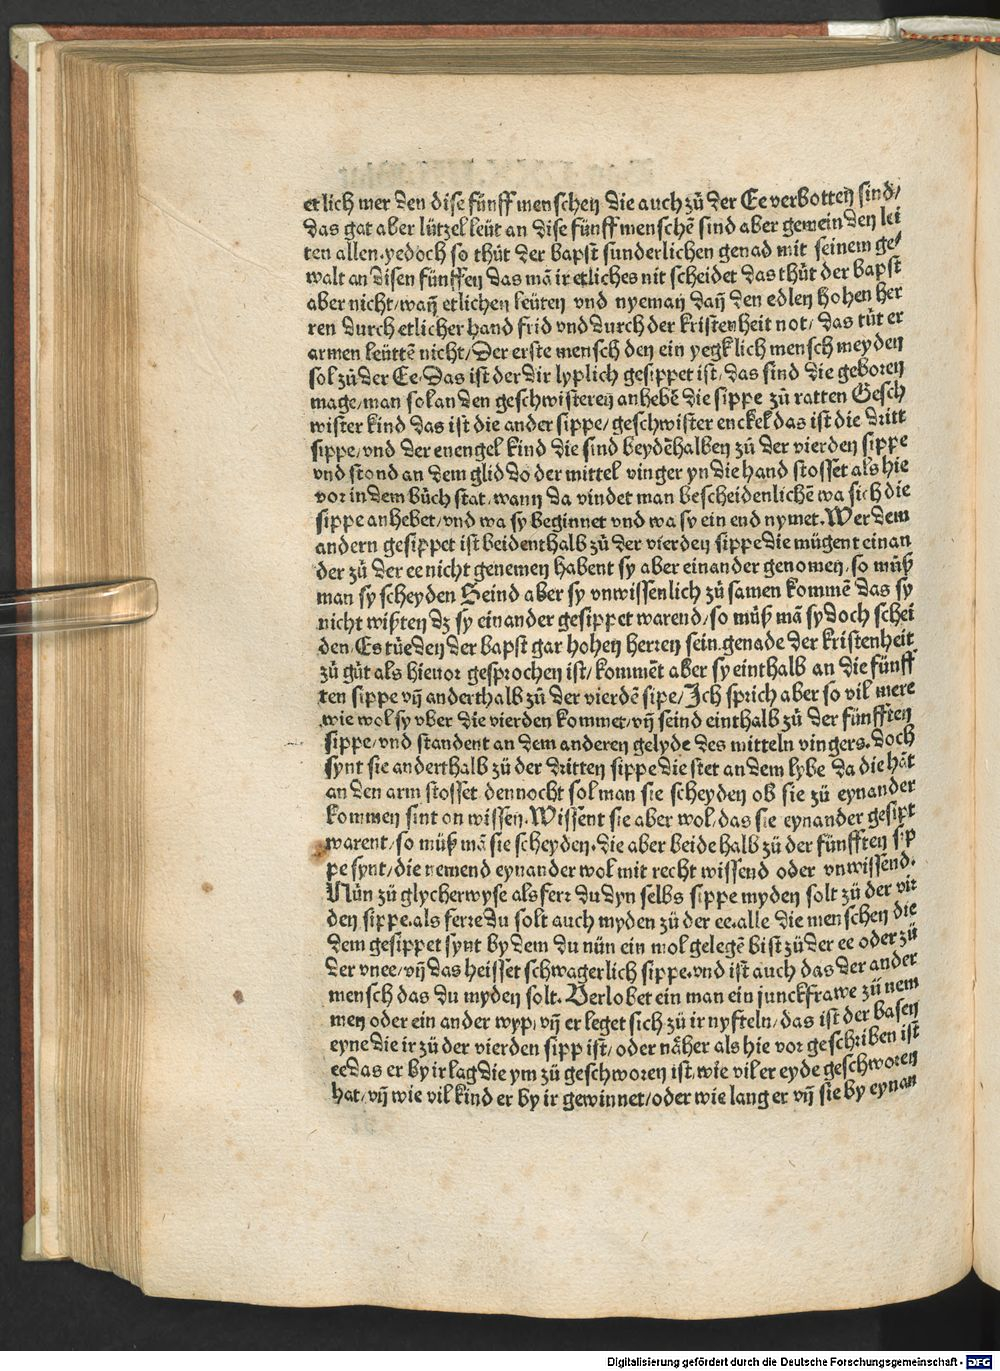 etlich mer den dise fünff menschen die auch zů der Ee verbotten sind/
das gat aber lützel leüt an dise fünff menschē sind aber gemein den lei
ten allen. yedoch so thůt der bapst sunderlichen genad mit seinem ge/
walt an disen fünffen das mā ir etliches nit scheidet das thůt der bapst
aber nicht/wañ etlichen leüten vnd nyeman dañ den edlen hohen her
ren durch etlicher hand frid vnd durch der kristenheit not/ das tůt er
armen leüttē nicht/Der erste mensch den ein yegklich mensch meyden
sol zů der Ee/Das ist der dir lyplich gesippet ist/das sind die geboren
mage/man sol an den geschwisteren anhebē die sippe zů ratten Gesch
wister kind das ist die ander sippe/geschwister enckel das ist die dritt
sippe/vnd der enengel kind die sind beydēhalben zů der vierden sippe
vnd stond an dem glid do der mittel vinger yn die hand stosset als hie
vor in dem bůch stat/wann da vindet man bescheidenlichē wa sich die
sippe anhebet/vnd wa sy beginnet vnd wa sy ein end nymet. Wer dem
andern gesippet ist beidenthalb zů der vierden sippe die mügent einan
der zů der ee nicht genemen habent sy aber einander genomen/so můß
man sy scheyden Seind aber sy vnwissenlich zů samen kommē das sy
nicht wißten dz sy einander gesippet warend/so můß mā sy doch schei
den/Es tüe den der bapst gar hohen herren sein genade der kristenheit
zů gůt als hieuor gesprochen ist/kommēt aber sy einthalb an die fünff
ten sippe vñ anderthalb zů der vierdē sipe/Ich sprich aber so vil mere
wie wol sy vber die vierden kommet/vñ seind einthalb zů der fünfften
sippe/vnd standent an dem anderen gelyde des mitteln vingers. doch
synt sie anderthalb zů der dritten sippe die stet an dem lybe da die hāt
an den arm stosset dennocht sol man sie scheyden ob sie zů eynander
kommen sint on wissen. Wissent sie aber wol/das sie eynander gesipt
warent/so můß mā sie scheyden. die aber beide halb zů der fünfften sip
pe synt/die nemend eynander wol mit recht wissend oder vnwissend.
Nün zů glycher wyse als ferr du dyn selbs sippe myden solt zů der vir
den sippe. als ferre du solt auch myden zů der ee. alle die menschen die
dem gesippet synt by dem du nün ein mol gelegē bist zů der ee oder zů
der vnee/vñ das heisset schwagerlich sippe. vnd ist auch das der ander
mensch das du myden solt. Verlobet ein man ein junckfrawe zů nem
men oder ein ander wyp/vñ er leget sich zů ir nyfteln/das ist der basen
eyne die ir zů der vierden sipp ist/oder näher als hie vor geschriben ist
ee das er by ir lag die ym zů geschworen ist/wie vil er eyde geschworen
hat/vñ wie vil kind er by ir gewinnet/oder wie lang er vñ sie by eynan
Digitalisierung gefördert durch die Deutsche Forschungsgemeinschaft - DFG